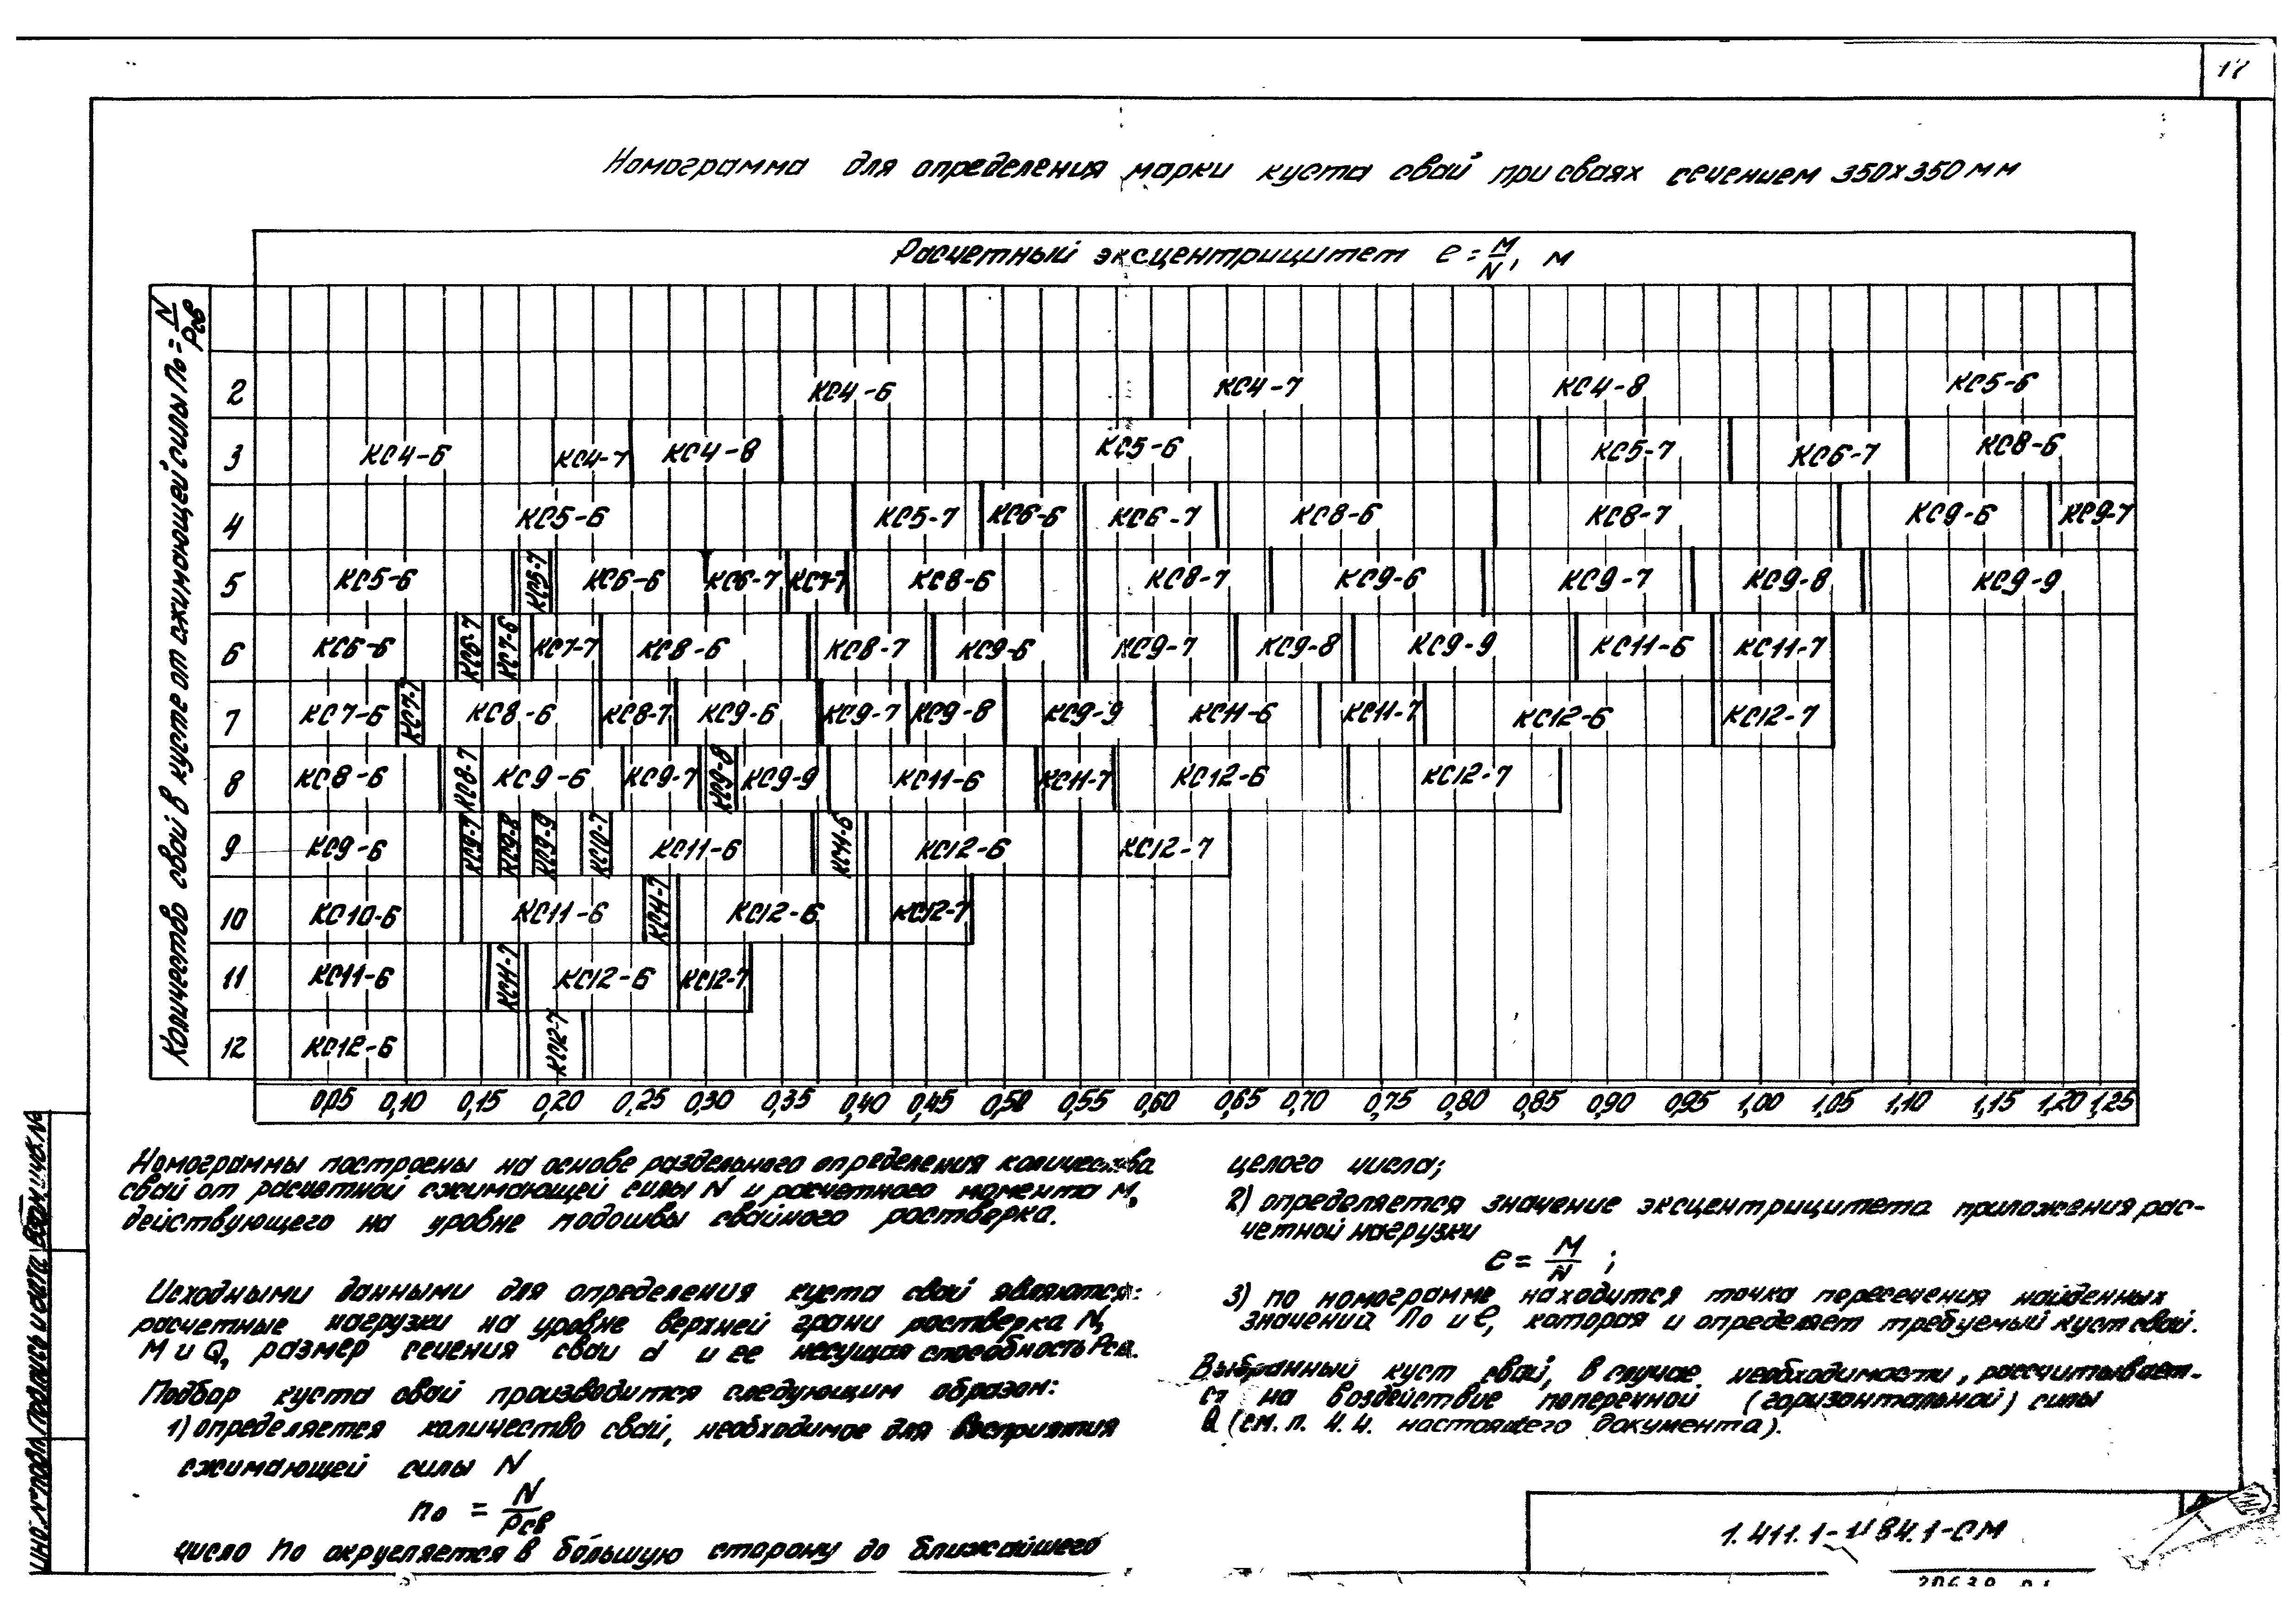 17
Номограмма для определения марки куста свай при сваях сечением 350х350мм
Расчетный эксцентрицитет e = M/N, м
Количество свай в кусте от сжимающей силы n₀ = N/Pсв
2 КС4-6 КС4-7 КС4-8 КС5-6
3 КС4-6 КС4-7 КС4-8 КС5-6 КС5-7 КС6-7 КС8-6
4 КС5-6 КС5-7 КС6-6 КС6-7 КС8-6 КС8-7 КС9-6 КС9-7
5 КС5-6 КС5-7 КС6-6 КС6-7 КС7-7 КС8-6 КС8-7 КС9-6 КС9-7 КС9-8 КС9-9
6 КС6-6 КС6-7 КС7-6 КС7-7 КС8-6 КС8-7 КС9-6 КС9-7 КС9-8 КС9-9 КС11-6 КС11-7
7 КС7-6 КС7-7 КС8-6 КС8-7 КС9-6 КС9-7 КС9-8 КС9-9 КС11-6 КС11-7 КС12-6 КС12-7
8 КС8-6 КС8-7 КС9-6 КС9-7 КС9-8 КС9-9 КС11-6 КС11-7 КС12-6 КС12-7
9 КС9-6 КС9-7 КС9-8 КС9-9 КС10-7 КС11-6 КС11-6 КС12-6 КС12-7
10 КС10-6 КС11-6 КС11-7 КС12-6 КС12-7
11 КС11-6 КС11-7 КС12-6 КС12-7
12 КС12-6 КС12-7
0,05 0,10 0,15 0,20 0,25 0,30 0,35 0,40 0,45 0,50 0,55 0,60 0,65 0,70 0,75 0,80 0,85 0,90 0,95 1,00 1,05 1,10 1,15 1,20 1,25
Номограммы построены на основе раздельного определения количества
свай от расчетной сжимающей силы N и расчетного момента M,
действующего на уровне подошвы свайного ростверка.
Исходными данными для определения куста свай являются:
расчетные нагрузки на уровне верхней грани ростверка N,
M и Q, размер сечения сваи d и ее несущая способность Pсв.
Подбор куста свай производится следующим образом:
1) определяется количество свай, необходимое для восприятия
сжимающей силы N
n₀ = N/Pсв
число n₀ округляется в большую сторону до ближайшего
целого числа;
2) определяется значение эксцентрицитета приложения рас-
четной нагрузки
e = M/N ;
3) по номограмме находится точка пересечения найденных
значений n₀ и e, которая и определяет требуемый куст свай.
Выбранный куст свай, в случае необходимости, рассчитывает-
ся на воздействие поперечной (горизонтальной) силы
Q (см. п. 4.4. настоящего документа).
Инв. № подл. Подпись и дата Взам. инв. №
1.411.1- 84.1-СМ